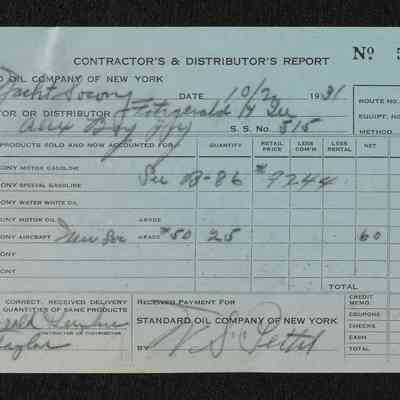 CONTRACTOR'S & DISTRIBUTOR'S REPORT
Nº 5
RD OIL COMPANY OF NEW YORK
Yacht Socony DATE 10/2 1931
ROUTE NO.
TOR OR DISTRIBUTOR Fitzgerald
EQUIPT. NO.
Alex Bay NY S. S. No. 515
METHOD
PRODUCTS SOLD AND NOW ACCOUNTED FOR QUANTITY RETAIL PRICE LESS COM. LESS RENTAL NET
ONY MOTOR GASOLINE
ONY SPECIAL GASOLINE See B-86 $9244
ONY WATER WHITE OIL
ONY MOTOR OIL GRADE
ONY AIRCRAFT GRADE #50 25 60
ONY
ONY
TOTAL
CORRECT. RECEIVED DELIVERY
QUANTITIES OF SAME PRODUCTS
CONTRACTOR OR DISTRIBUTOR
RECEIVED PAYMENT FOR
STANDARD OIL COMPANY OF NEW YORK
BY
CREDIT MEMO
COUPONS
CHECKS
CASH
TOTAL